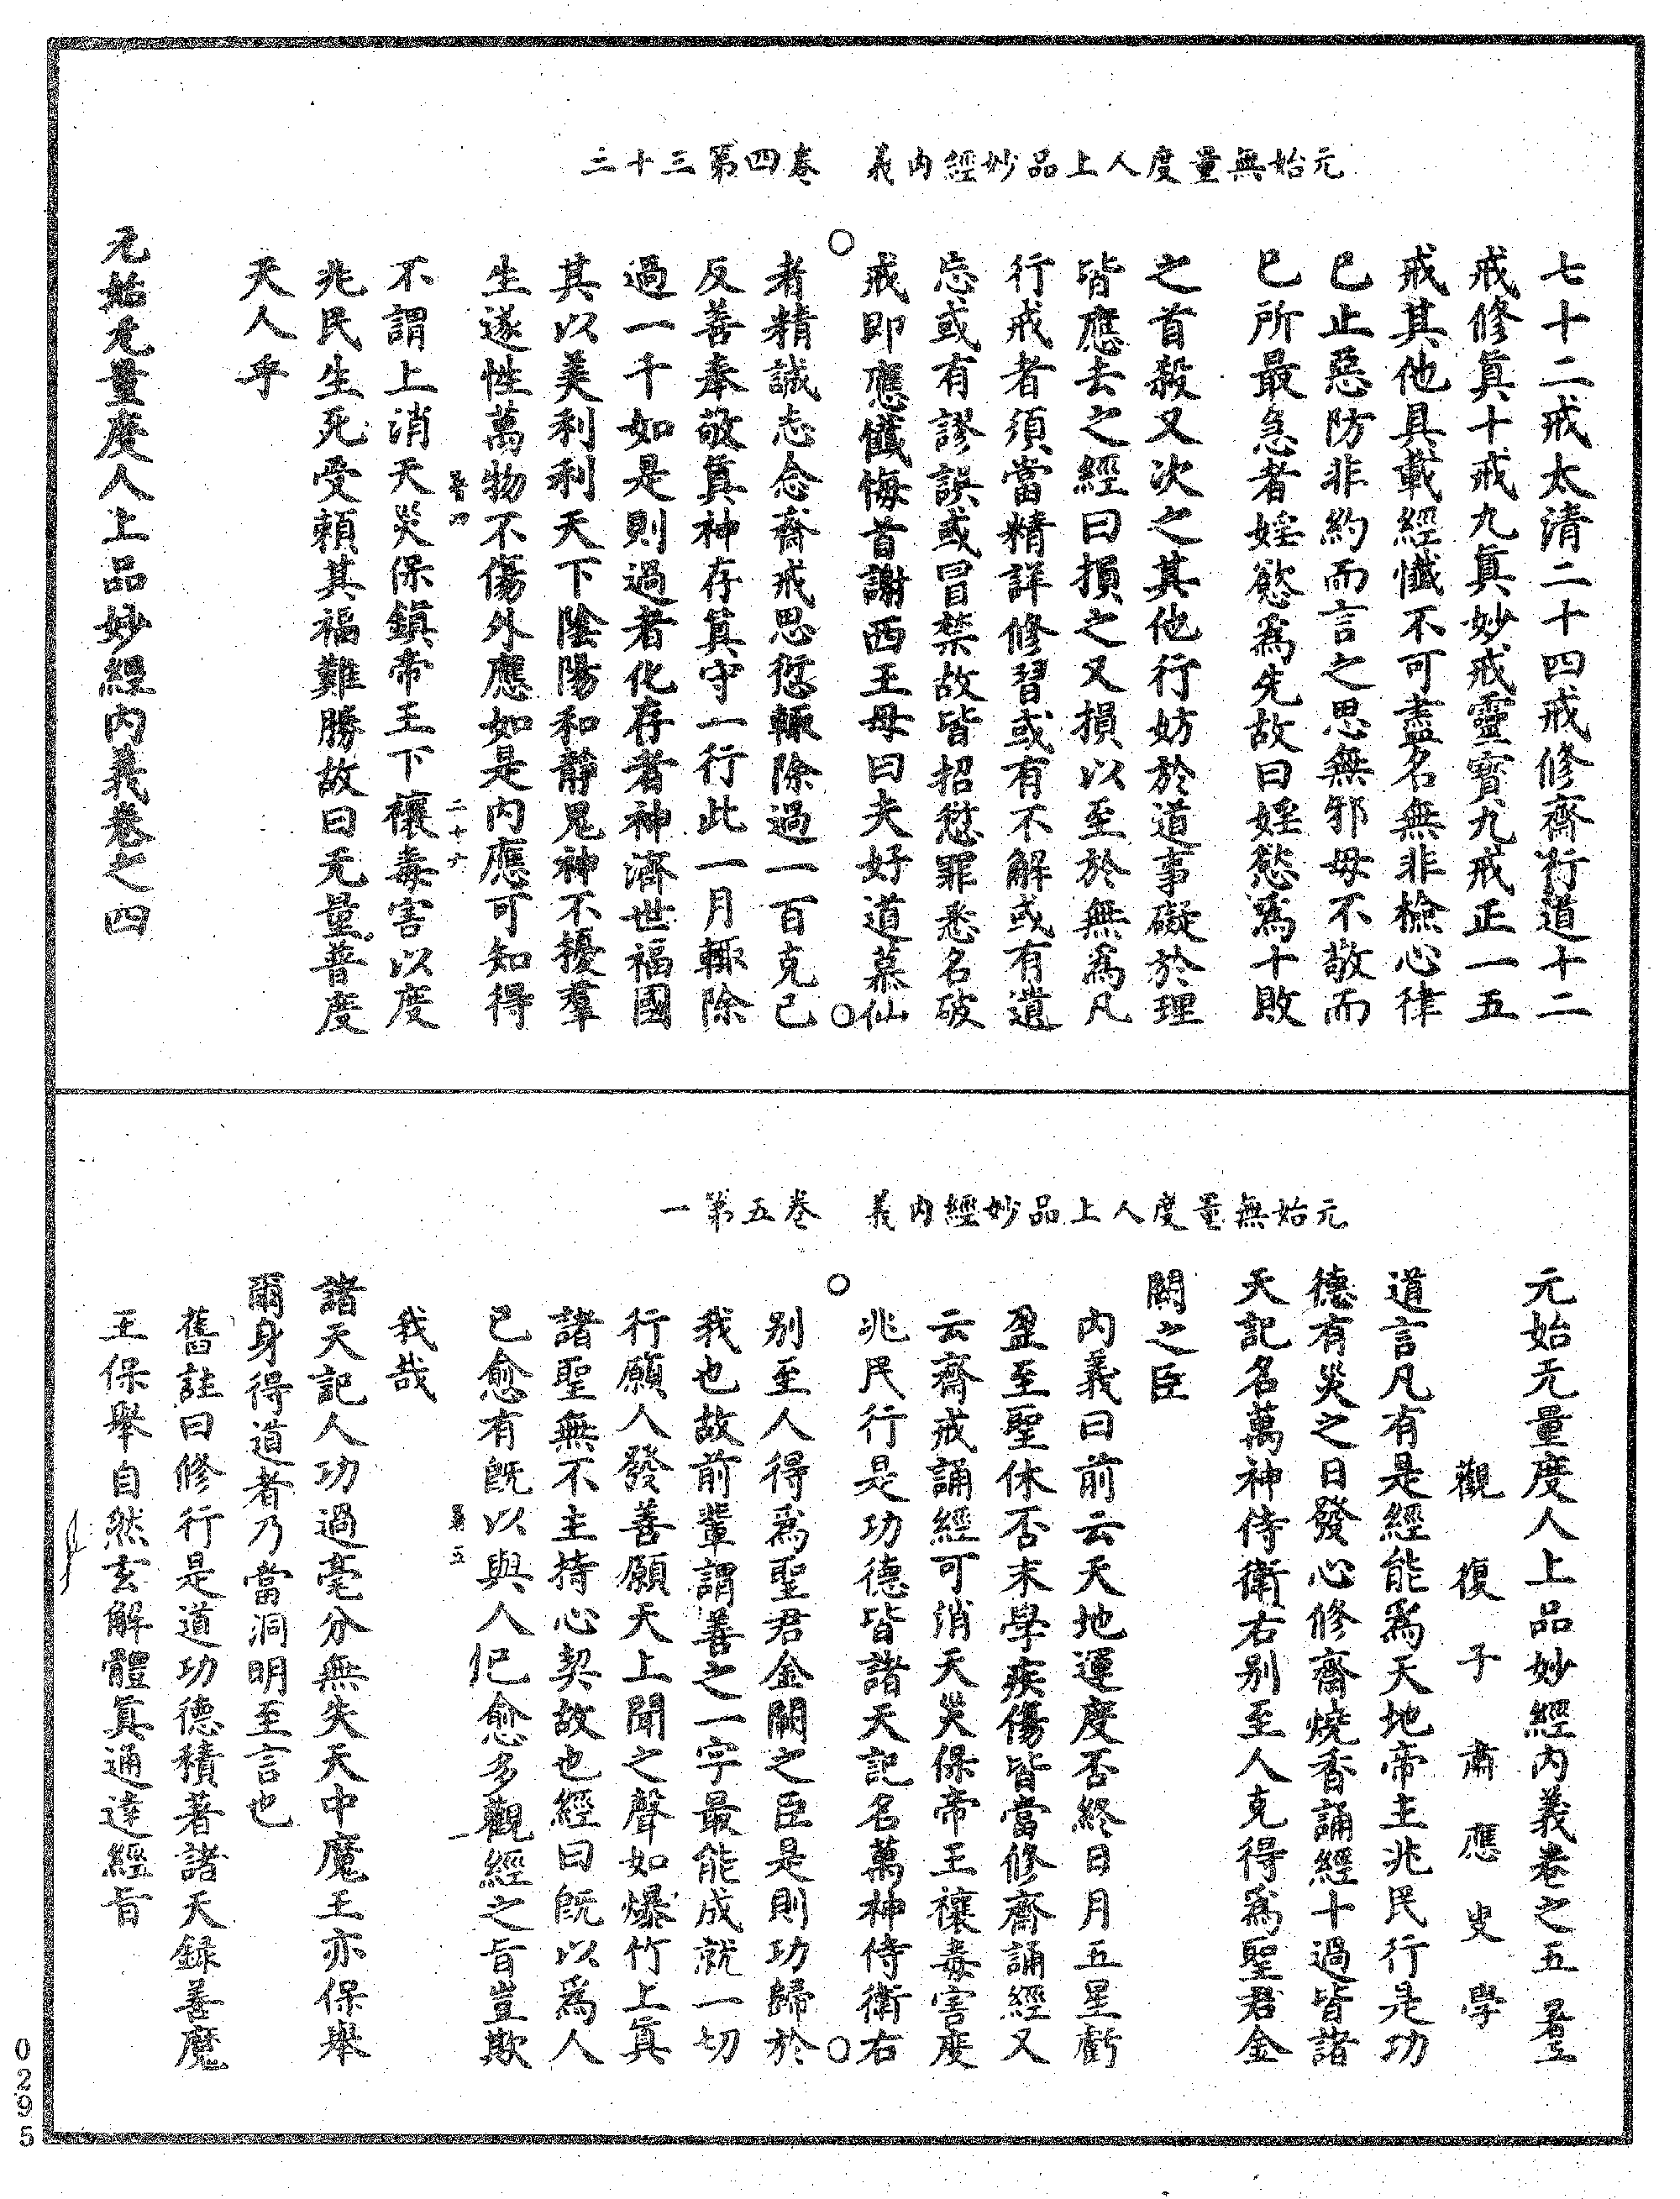 元始無量度人上品妙經內義　卷四第三十三
七十二戒太清二十四戒修齋行道十二
戒修眞十戒九眞妙戒靈寳九戒正一五
戒其他具載經懺不可盡名無非檢心律
巳止惡防非約而言之思無邪毋不敬而
巳所最急者婬慾爲先故曰婬慾爲十敗
之首殺又次之其他行妨於道事礙於理
皆應去之經曰損之又損以至於無爲凡
行戒者須當精詳修習或有不解或有遺
忘或有謬誤或冒禁故皆招愆罪悉名破
戒即應懺悔首謝西王母曰夫好道慕仙
者精誠志念齋戒思愆輒除過一百克己
反善奉敬眞神存眞守一行此一月輒除
過一千如是則過者化存者神濟世福國
其以美利利天下陰陽和靜鬼神不擾羣
生遂性萬物不傷外應如是內應可知得
不謂上消天災保鎮帝王下禳毒害以度
兆民生死受頼其福難勝故曰无量普度
天人乎
元始无量度人上品妙經內義卷之四
元始無量度人上品妙經內義　卷五第一
元始无量度人上品妙經內義卷之五
觀復子肅應叟學
道言凡有是經能爲天地帝主兆民行是功
德有災之日發心修齋燒香誦經十過皆諸
天記名萬神侍衛右别至人克得爲聖君金
闕之臣
內義曰前云天地運度否終日月五星虧
盈至聖休否末學疾傷皆當修齋誦經又
云齋戒誦經可消天災保帝王禳毒害度
兆民行是功德皆諸天記名萬神侍衛右
别至人得爲聖君金闕之臣是則功歸於
我也故前輩謂善之一字最能成就一切
行願人發善願天上聞之聲如爆竹上眞
諸聖無不主持心契故也經曰旣以爲人
已愈有旣以與人已愈多觀經之旨豈欺
我哉
諸天記人功過毫分無失天中魔王亦保舉
爾身得道者乃當洞明至言也
舊註曰修行是道功德積著諸天録善魔
王保舉自然玄解體眞通達經旨
0295